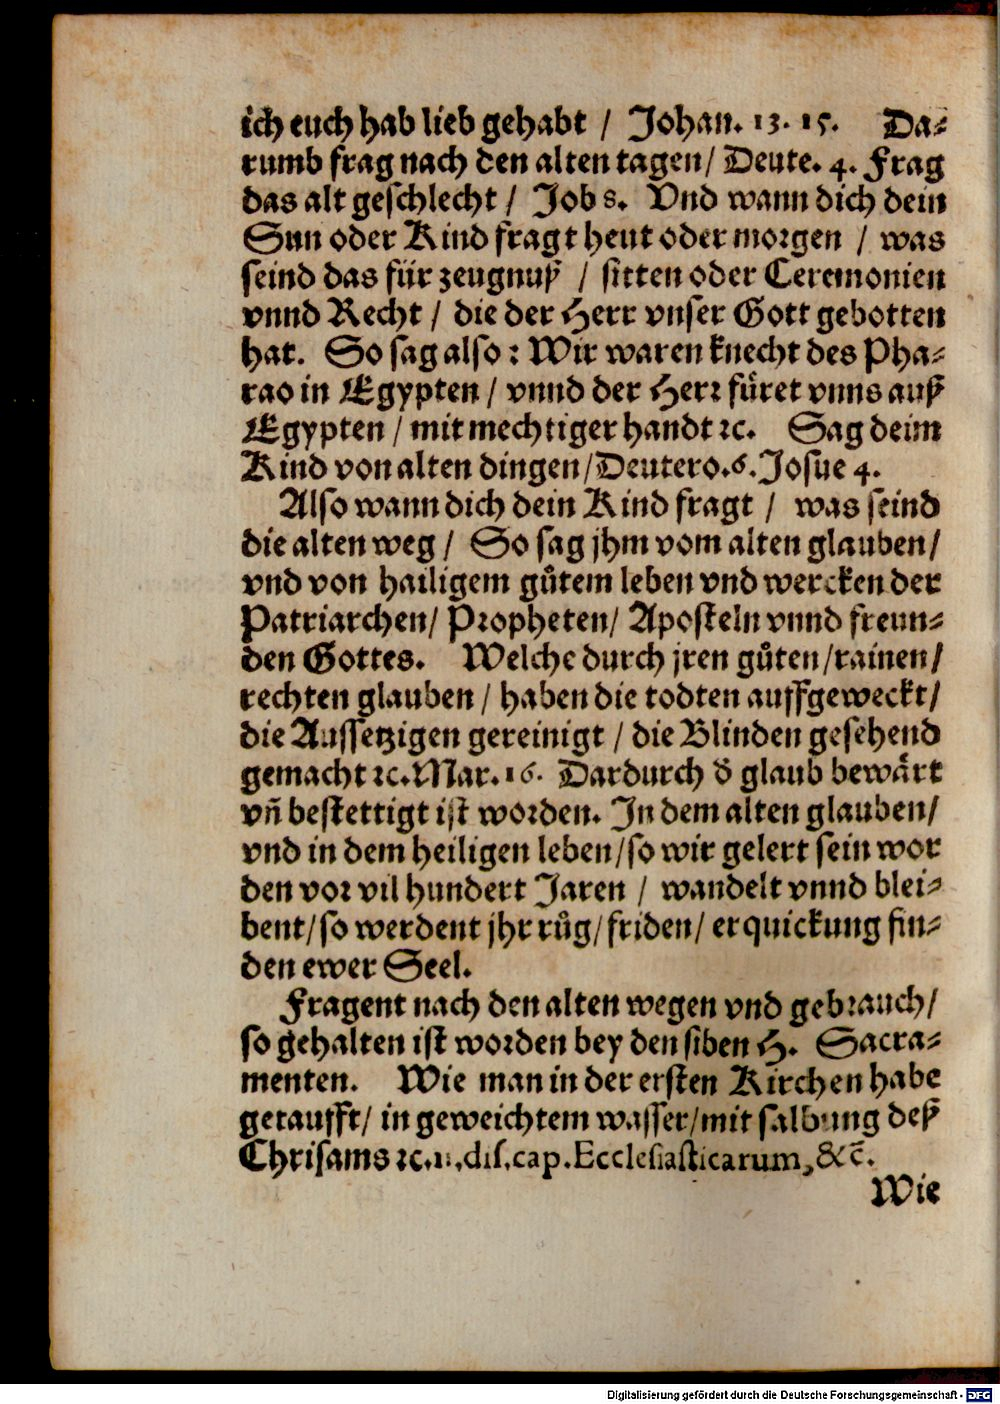 ich euch hab lieb gehabt / Johan. 13. 15. Da-
rumb frag nach den alten tagen/ Deute. 4. Frag
das alt geschlecht / Job 8. Vnd wann dich dein
Sun oder Kind fragt heut oder morgen / was
seind das für zeugnuß / sitten oder Ceremonien
vnnd Recht / die der Herr vnser Gott gebotten
hat. So sag also : Wir waren knecht des Pha-
rao in Egypten / vnnd der Herr fůret vnns auß
Egypten / mit mechtiger handt ꝛc. Sag deim
Kind von alten dingen/Deutero.6. Josue 4.
Also wann dich dein Kind fragt / was seind
die alten weg / So sag jhm vom alten glauben/
vnd von hailigem gůtem leben vnd wercken der
Patriarchen/ Propheten/ Aposteln vnnd freun-
den Gottes. Welche durch jren gůten/rainen/
rechten glauben / haben die todten auffgeweckt/
die Aussetzigen gereinigt / die Blinden gesehend
gemacht ꝛc. Mar. 16. Dardurch d̃ glaub bewärt
vñ bestettigt ist worden. In dem alten glauben/
vnd in dem heiligen leben/so wir gelert sein wor
den vor vil hundert Jaren / wandelt vnnd blei-
bent/so werdent jhr růg/friden/ erquickung fin-
den ewer Seel.
Fragent nach den alten wegen vnd gebrauch/
so gehalten ist worden bey den siben H. Sacra-
menten. Wie man in der ersten Kirchen habe
getaufft/ in geweichtem wasser/mit salbung deß
Chrisams ꝛc. 11. dis. cap. Ecclesiasticarum, &c̃.
Wie
Digitalisierung gefördert durch die Deutsche Forschungsgemeinschaft - DFG